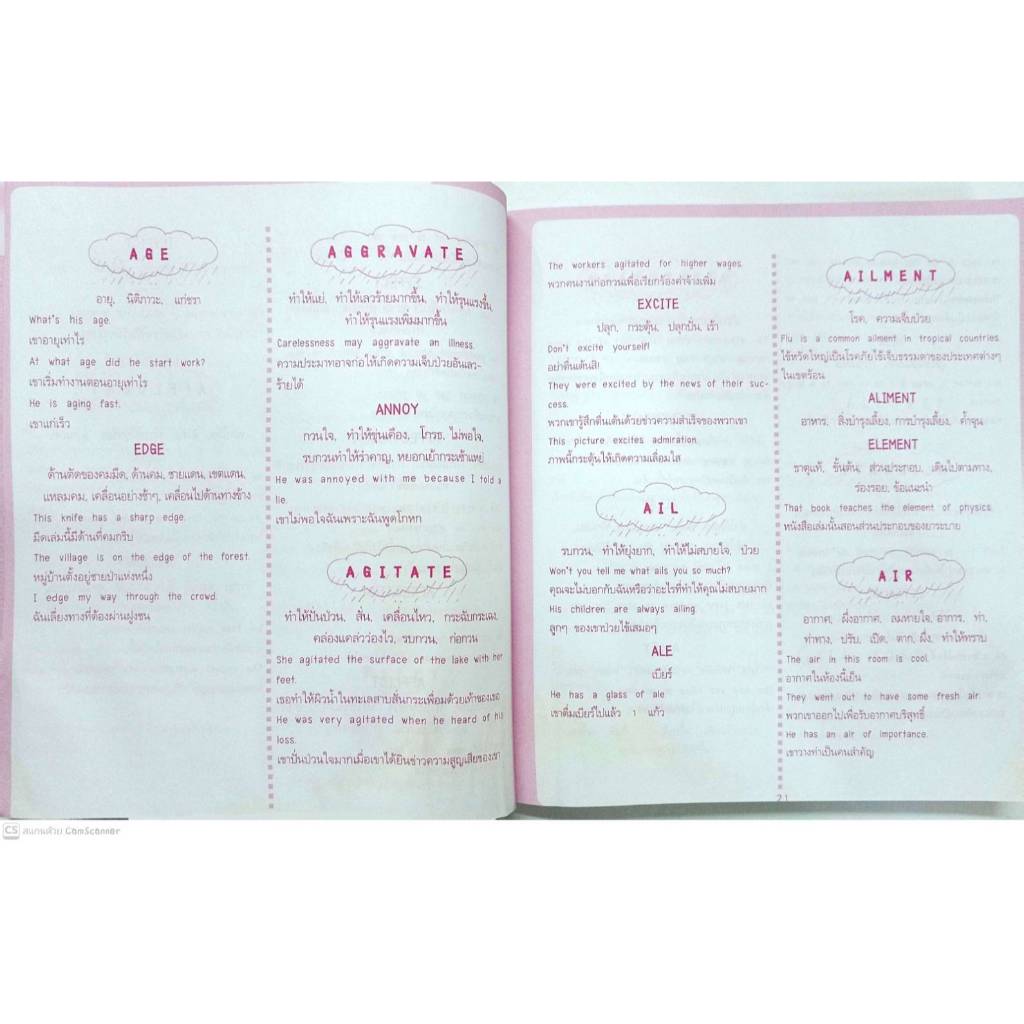 AGE
อายุ, นิติภาวะ, แก่ชรา
What's his age.
เขาอายุเท่าไร
At what age did he start work?
เขาเริ่มทำงานตอนอายุเท่าไร
He is aging fast.
เขาแก่เร็ว
EDGE
ด้านตัดของคมมีด, ด้านคม, ชายแดน, เขตแดน,
แหลมคม, เคลื่อนอย่างช้าๆ, เคลื่อนไปด้านทางข้าง
This knife has a sharp edge.
มีดเล่มนี้มีด้านที่คมกริบ
The village is on the edge of the forest.
หมู่บ้านตั้งอยู่ชายป่าแห่งหนึ่ง
I edge my way through the crowd.
ฉันเลี่ยงทางที่ต้องผ่านฝูงชน
AGGRAVATE
ทำให้แย่, ทำให้เลวร้ายมากขึ้น, ทำให้รุนแรงขึ้น,
ทำให้รุนแรงเพิ่มมากขึ้น
Carelessness may aggravate an illness.
ความประมาทอาจก่อให้เกิดความเจ็บป่วยอันเลว-
ร้ายได้
ANNOY
กวนใจ, ทำให้ขุ่นเคือง, โกรธ, ไม่พอใจ,
รบกวนทำให้รำคาญ, หยอกเย้ากระเซ้าแหย่
He was annoyed with me because I told a
lie.
เขาไม่พอใจฉันเพราะฉันพูดโกหก
AGITATE
ทำให้ปั่นป่วน, สั่น, เคลื่อนไหว, กระฉับกระเฉง,
คล่องแคล่วว่องไว, รบกวน, ก่อกวน
She agitated the surface of the lake with her
feet.
เธอทำให้ผิวน้ำในทะเลสาบสั่นกระเพื่อมด้วยเท้าของเธอ
He was very agitated when he heard of his
loss.
เขาปั่นป่วนใจมากเมื่อเขาได้ยินข่าวความสูญเสียของเขา
The workers agitated for higher wages.
พวกคนงานก่อกวนเพื่อเรียกร้องค่าจ้างเพิ่ม
EXCITE
ปลุก, กระตุ้น, ปลุกปั่น, เร้า
Don't excite yourself!
อย่าตื่นเต้นสิ!
They were excited by the news of their suc-
cess.
พวกเขารู้สึกตื่นเต้นด้วยข่าวความสำเร็จของพวกเขา
This picture excites admiration.
ภาพนี้กระตุ้นให้เกิดความเลื่อมใส
AIL
รบกวน, ทำให้ยุ่งยาก, ทำให้ไม่สบายใจ, ป่วย
Won't you tell me what ails you so much?
คุณจะไม่บอกกับฉันหรือว่าอะไรที่ทำให้คุณไม่สบายมาก
His children are always ailing.
ลูกๆ ของเขาป่วยไข้เสมอๆ
ALE
เบียร์
He has a glass of ale
เขาดื่มเบียร์ไปแล้ว 1 แก้ว
AILMENT
โรค, ความเจ็บป่วย
Flu is a common ailment in tropical countries.
ไข้หวัดใหญ่เป็นโรคภัยไข้เจ็บธรรมดาของประเทศต่างๆ
ในเขตร้อน
ALIMENT
อาหาร, สิ่งบำรุงเลี้ยง, การบำรุงเลี้ยง, ค้ำจุน
ELEMENT
ธาตุแท้, ขั้นต้น, ส่วนประกอบ, เดินไปตามทาง,
ร่องรอย, ข้อแนะนำ
That book teaches the element of physics.
หนังสือเล่มนั้นสอนส่วนประกอบของยาระบาย
AIR
อากาศ, ผึ่งอากาศ, ลมหายใจ, อาการ, ท่า,
ท่าทาง, ปรับ, เปิด, ตาก, ผึ่ง, ทำให้ทราบ
The air in this room is cool.
อากาศในห้องนี้เย็น
They went out to have some fresh air.
พวกเขาออกไปเพื่อรับอากาศบริสุทธิ์
He has an air of importance.
เขาวางท่าเป็นคนสำคัญ
21
CS สแกนด้วย CamScanner